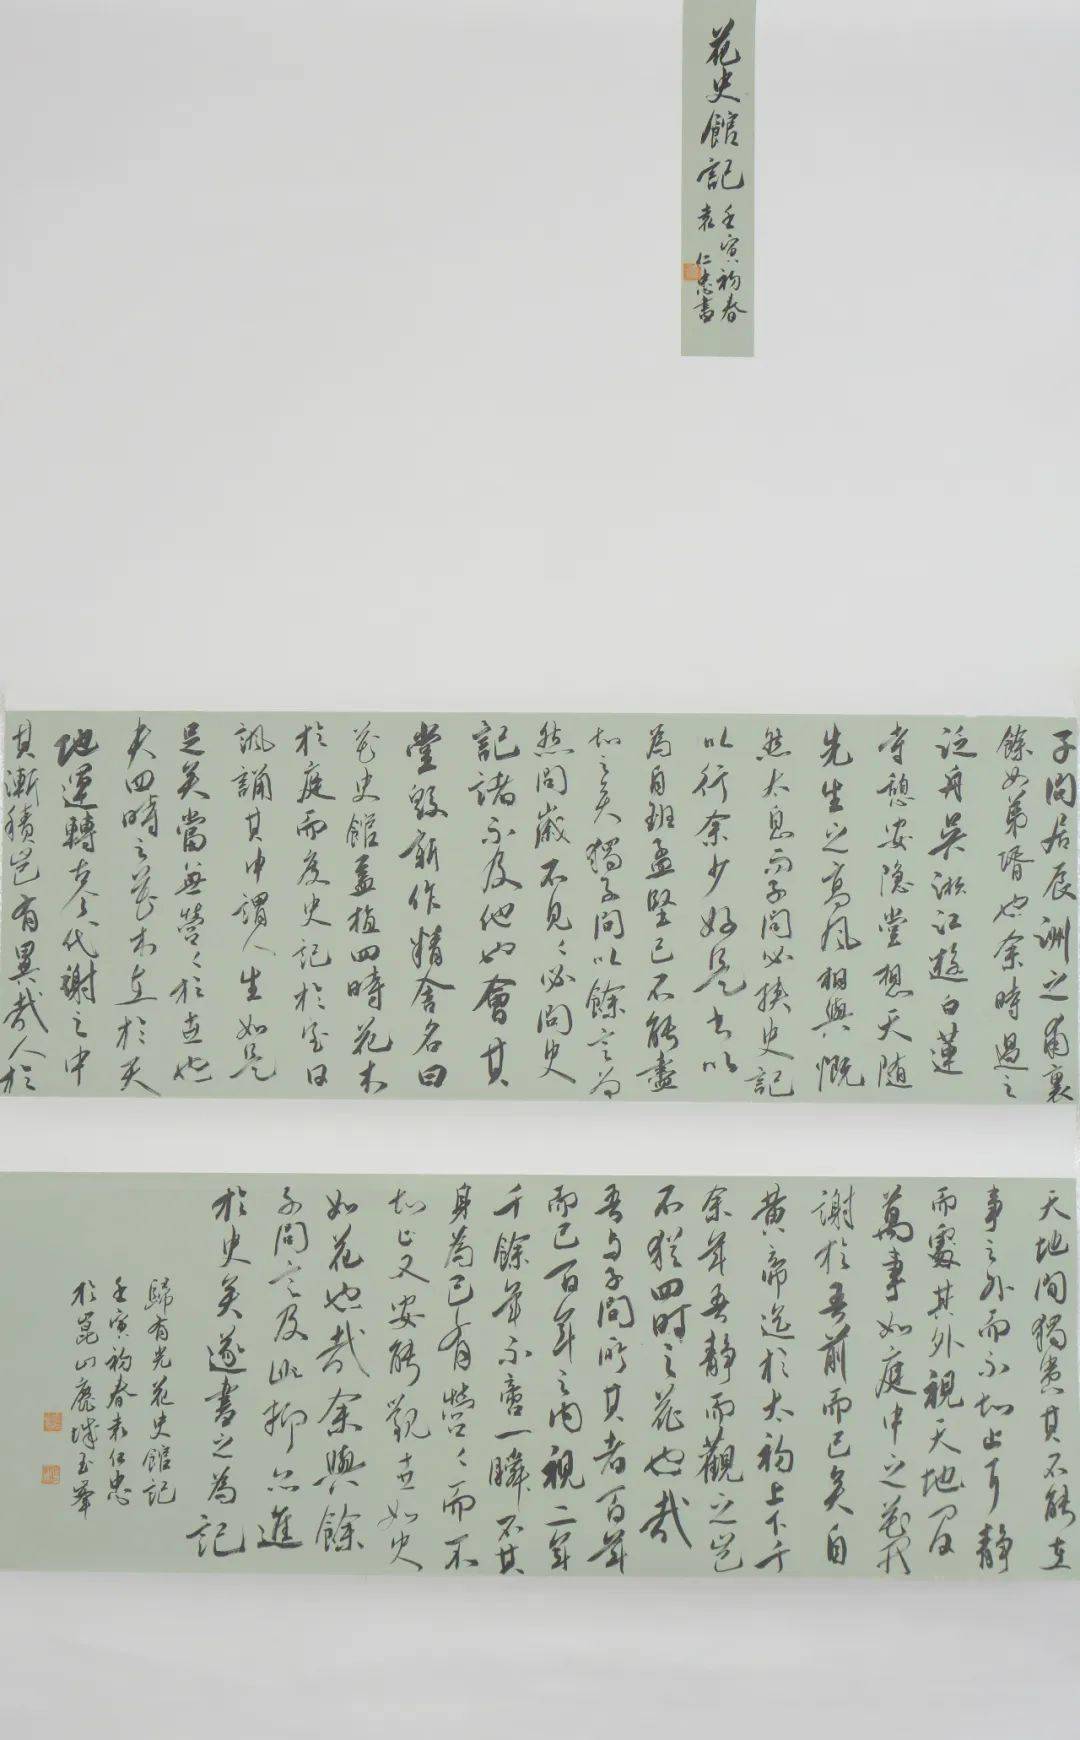 花史館記
壬寅初春
袁仁忠書
子問居辰洲之甫裏
餘女弟壻也余時過之
泛舟吴淞江遊白蓮
寺憩安隐堂想天随
先生之高風相與慨
然太息而子問必挟史記
以行余少好是書以
為自班孟堅已不能盡
知之矣獨子問以餘言為
然問歲不見見必問史
記諸不及他也會其
堂毀新作精舍名曰
花史館蓋植四時花木
於庭而庋史記於室日
諷誦其中謂人生如是
足矣當無營營於世也
夫四時之花木在於天
地運轉古今代謝之中
其漸積豈有異哉人於
天地間獨患其不能在
事之外而不知止耳静
而處其外視天地間
萬事如庭中之花開
謝於吾前而已矣自
黄帝迄於太初上下千
余年吾静而觀之豈
不猶四時之花也哉
吾与子問所其者百年
而已百年之内視二年
千餘年不啻一瞬不其
身為己有營營而不
知止又安能觀世如史
如花也哉余與餘
子問言及此抑亦進
於史矣遂書之為
記
歸有光花史館記
壬寅初春袁仁忠
於崑山鹿城玉峯